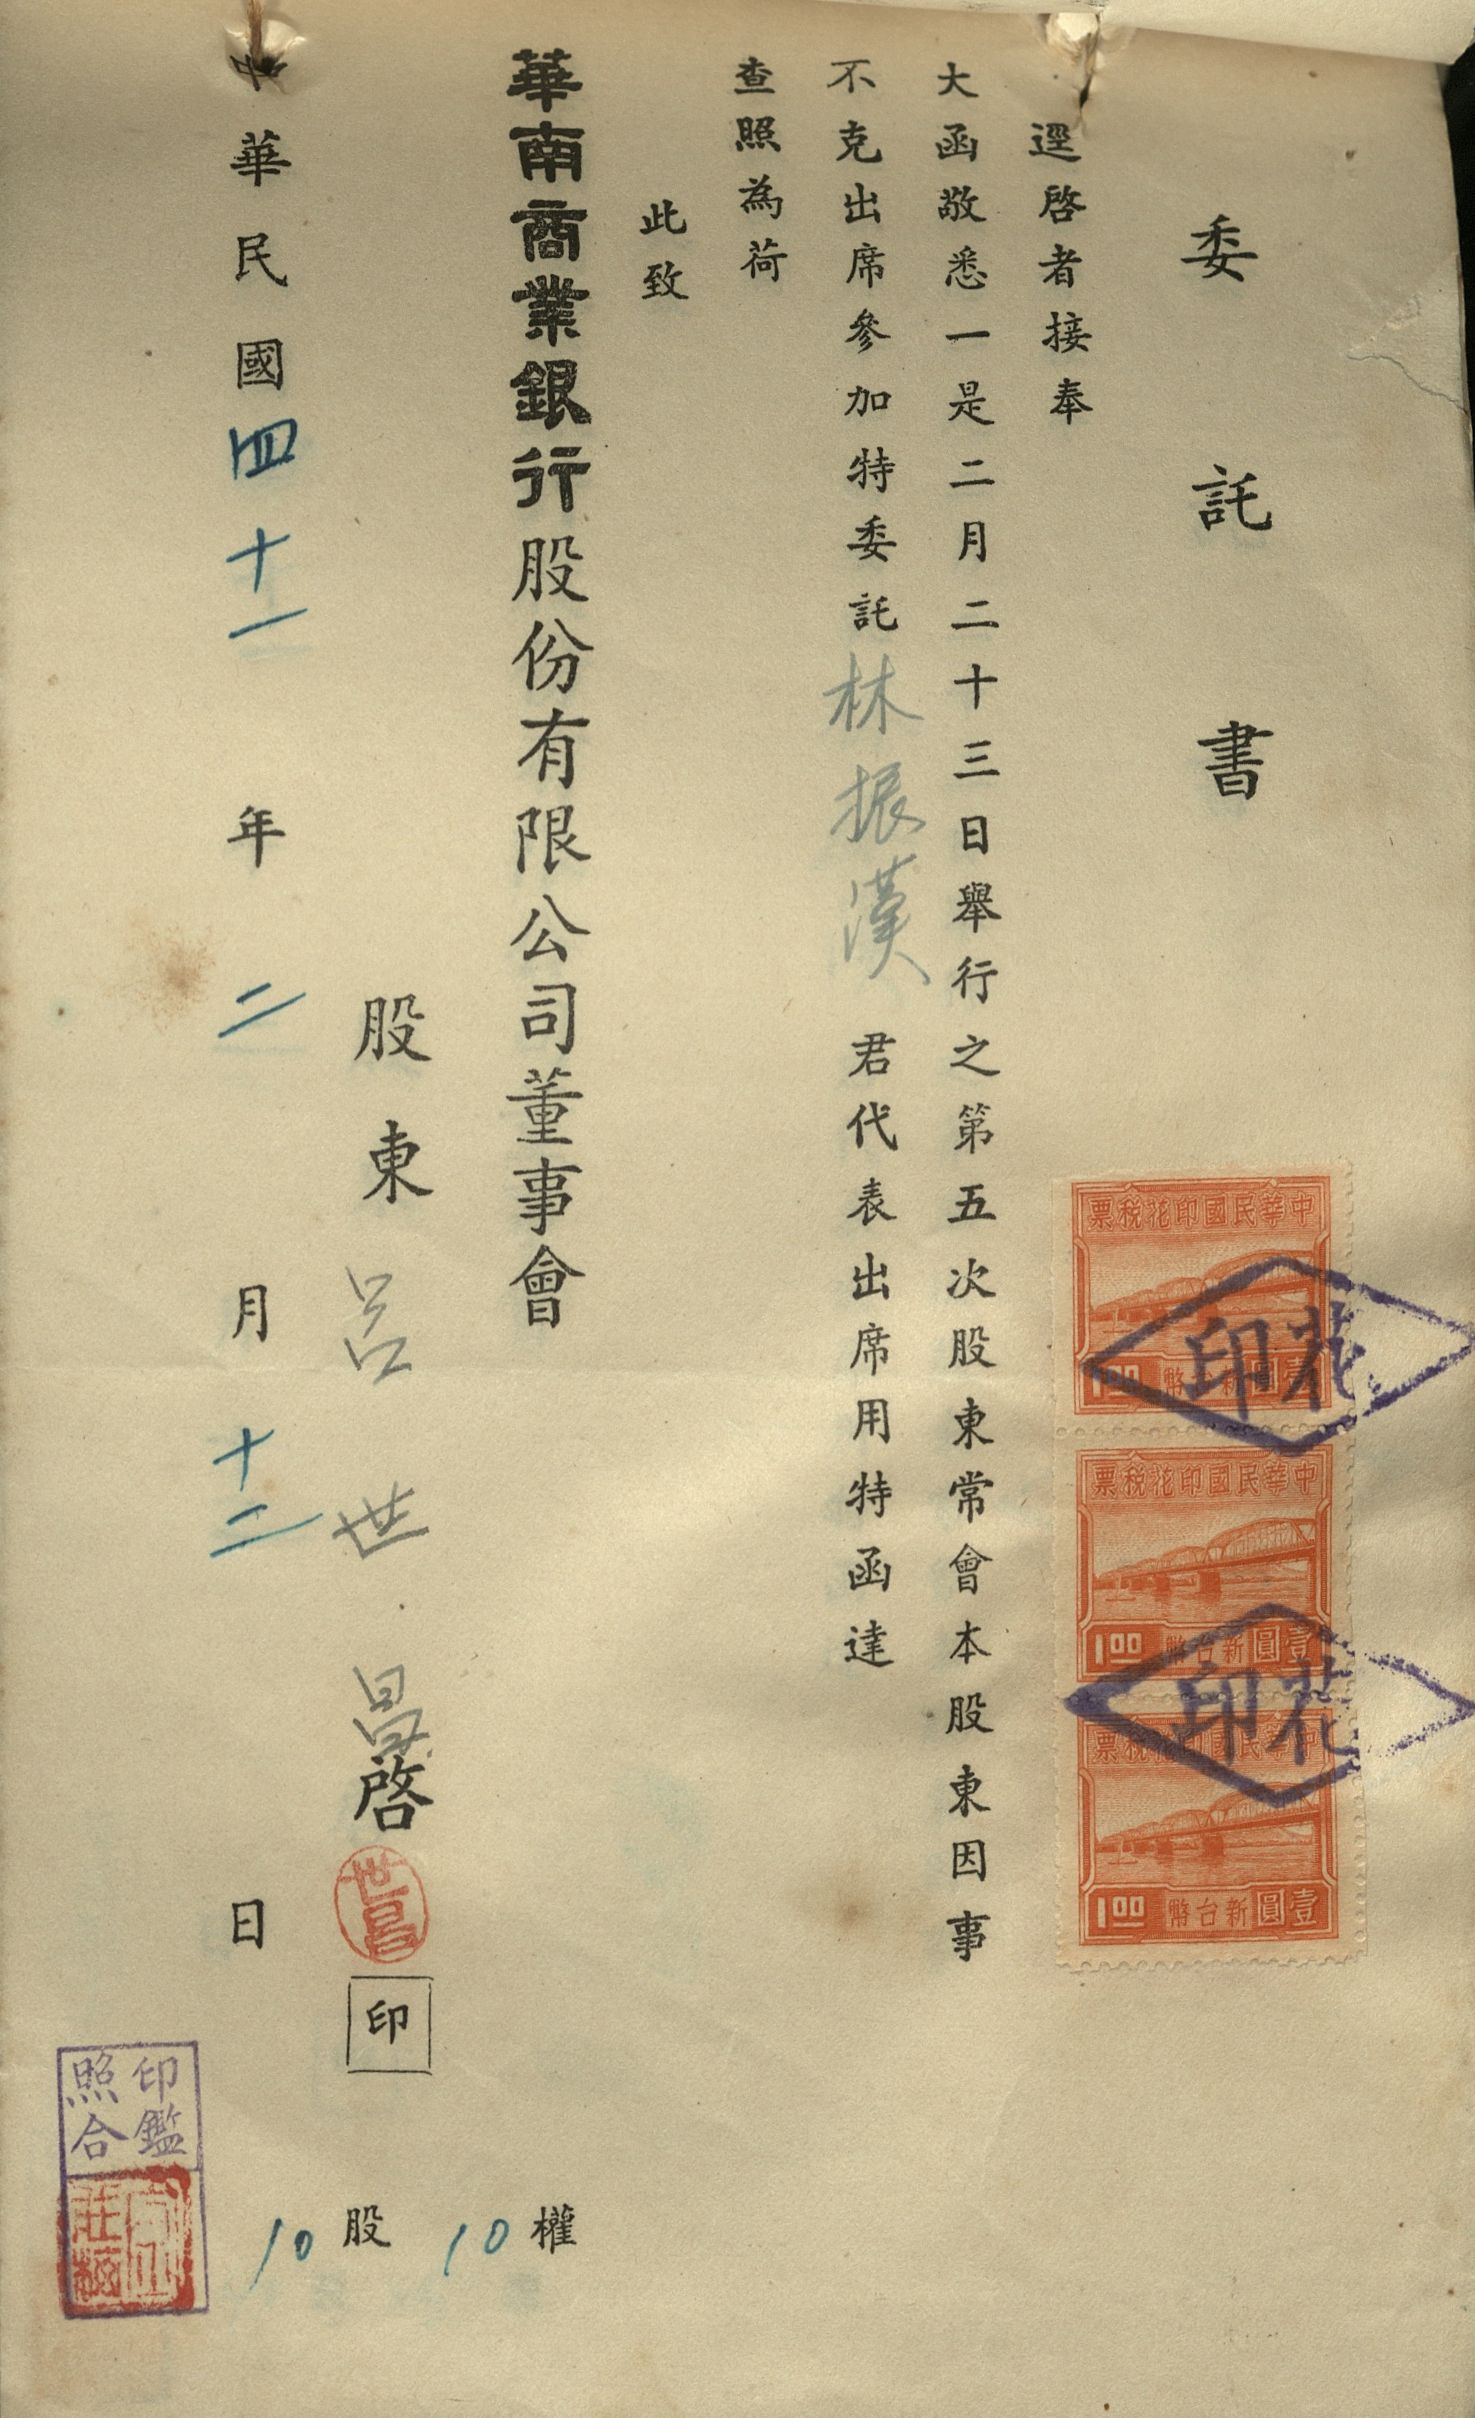 委託書
逕啓者接奉
大函敬悉一是二月二十三日舉行之第五次股東常會本股東因事
不克出席參加特委託林振漢君代表出席用特函達
查照為荷
此致
華南商業銀行股份有限公司董事會
股東呂世昌啓
世昌
印
10權
10股
中華民國四十一年二月十二日
中華民國印花稅票
壹圓新台幣
1.00
花印
中華民國印花稅票
壹圓新台幣
1.00
花印
中華民國印花稅票
壹圓新台幣
1.00
印鑑
照合